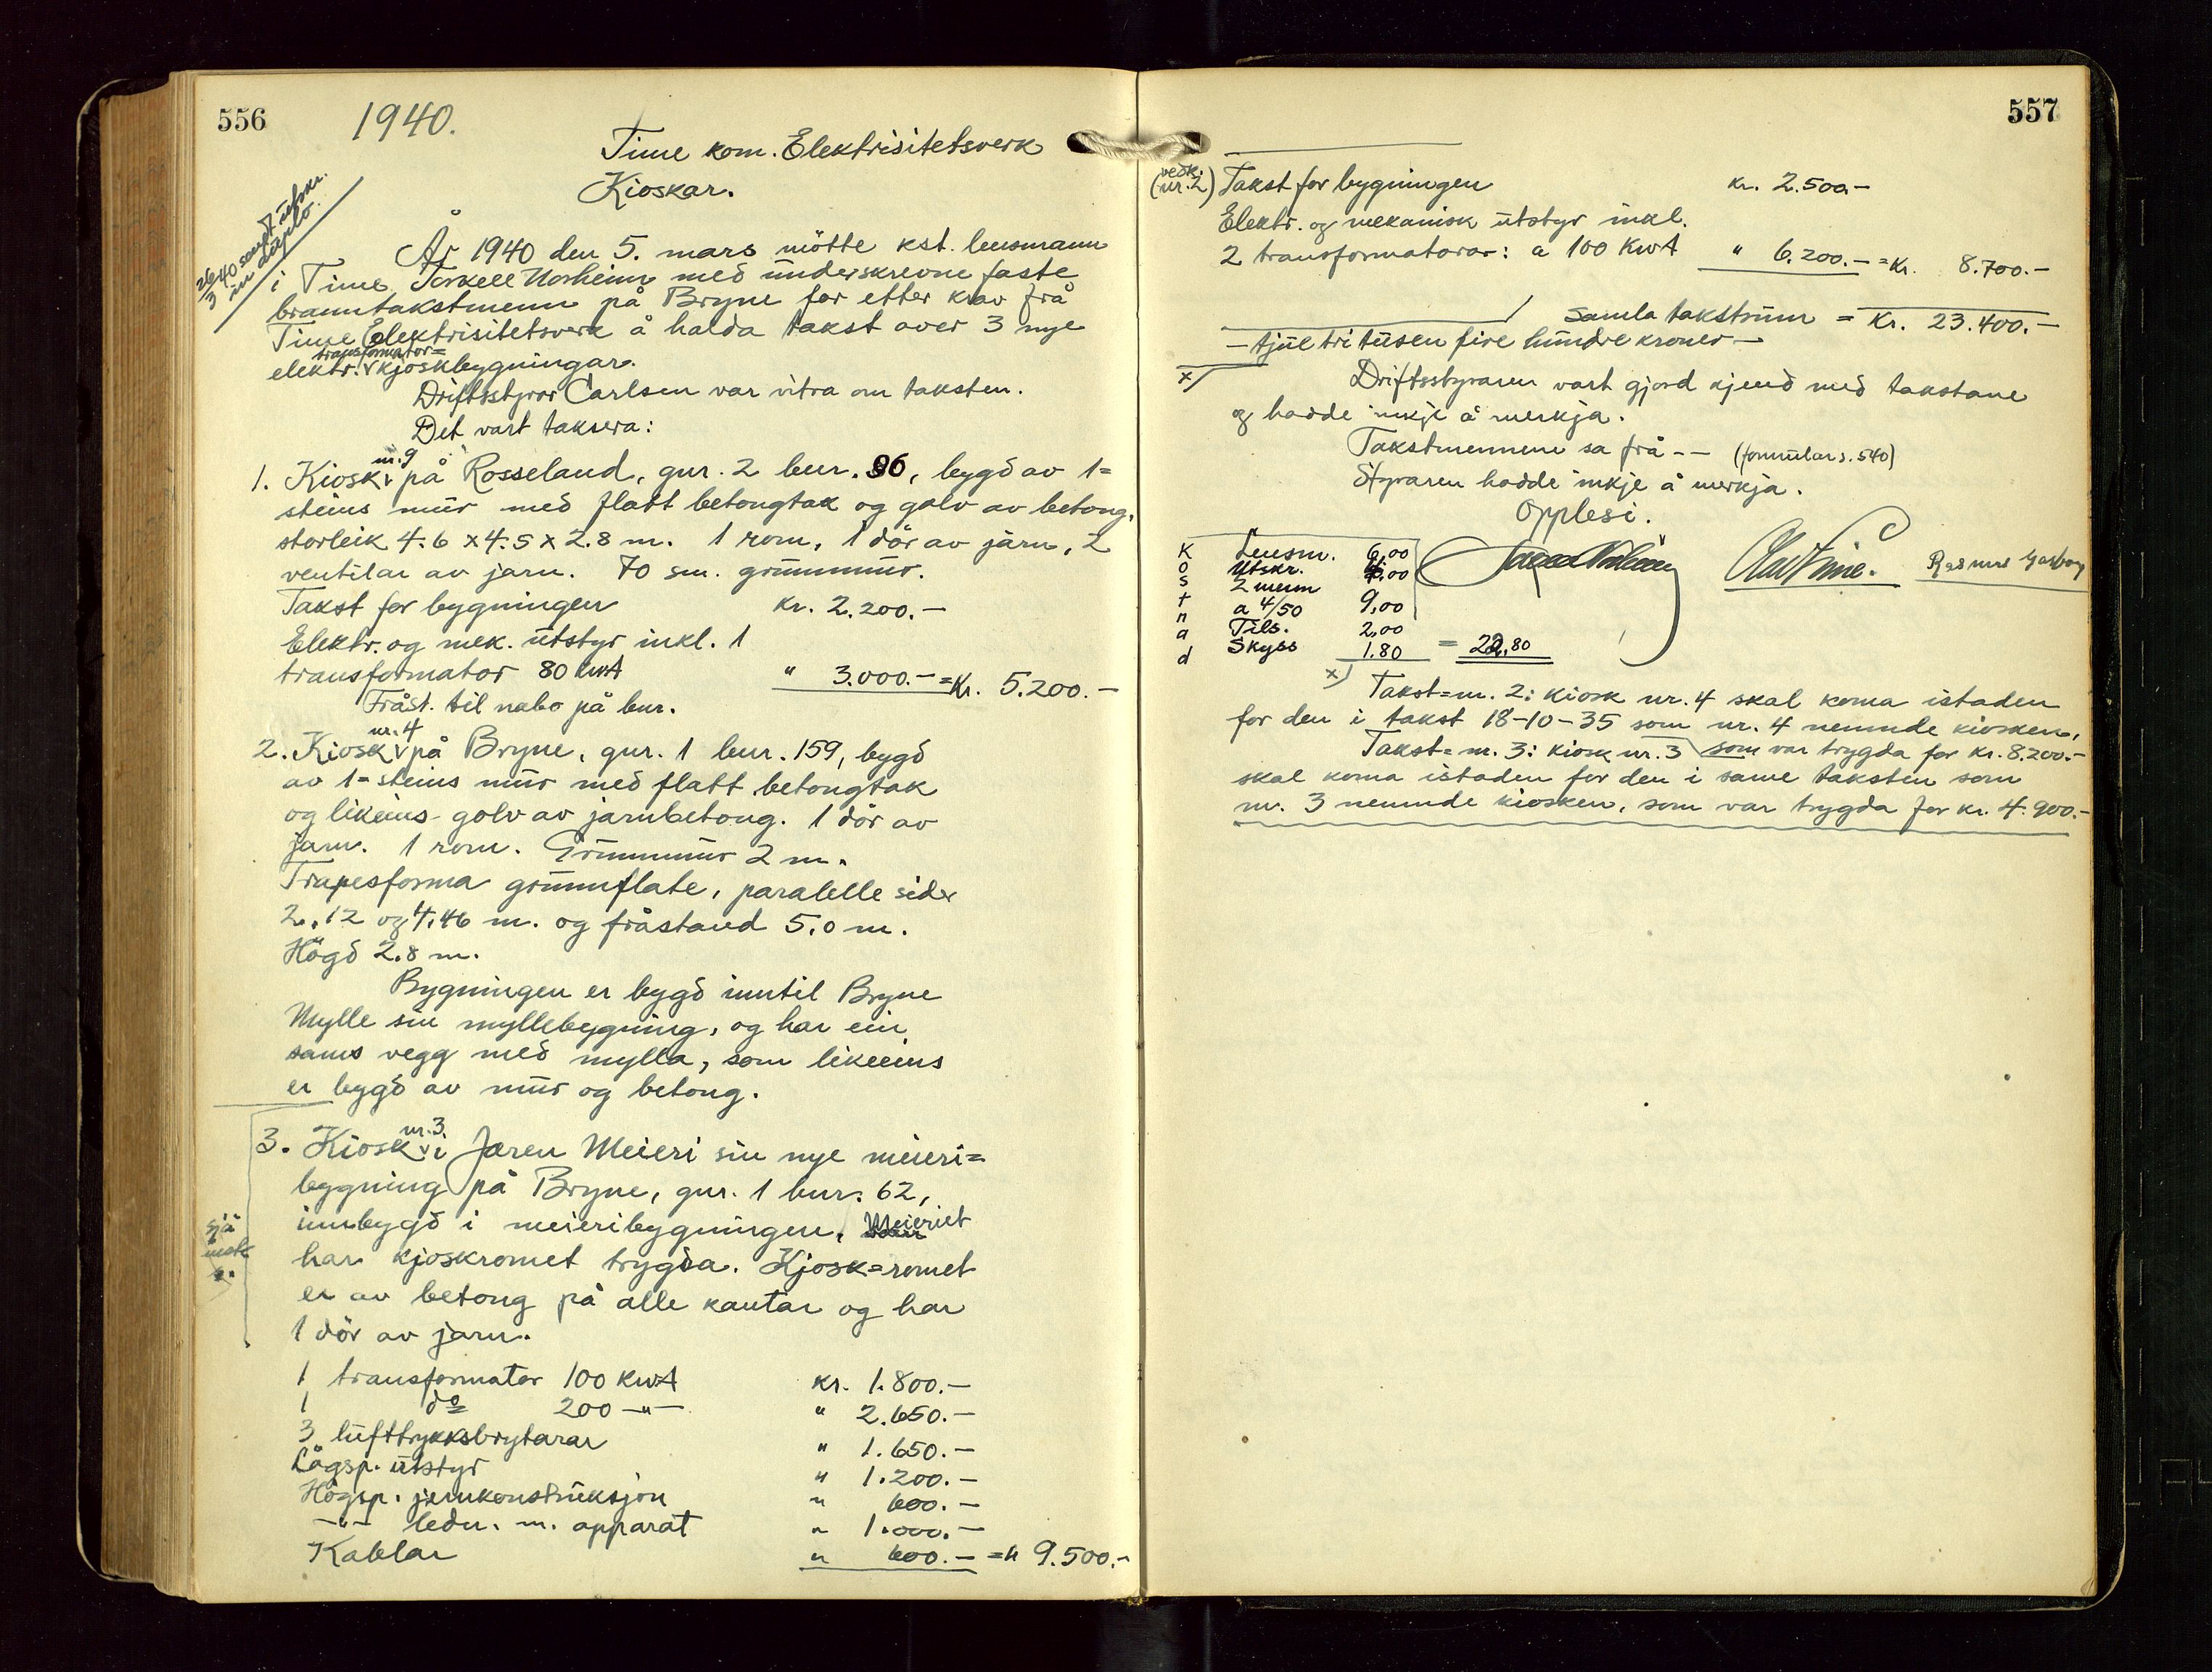 556
1940.
Time kom. Elektrisitetsverk
Kioskar.
26/3 40 sendt utskr.
in duplo.
År 1940 den 5. mars møtte kst. lensmann
i Time, Torkell Norheim med underskrevne faste
branntakstmenn på Bryne for etter krav frå
Time Elektrisitetsverk å halda takst over 3 nye
transformator=
elektr. v kjoskbygningar.
Driftsstyrar Carlsen var vitra om taksten.
Det vart taksera:
nr. 9
1. Kiosk v på Rosseland, gnr. 2 bnr. 86, bygd av 1=
steins mur med flatt betongtak og golv av betong,
storleik 4.6 x 4.5 x 2.8 m. 1 rom, 1 dör av jarn, 2
ventilar av jarn. 70 sm. grunnmur.
Takst for bygningen kr. 2.200.-
Elektr. og mek. utstyr inkl. 1
transformator 80 KwA " 3.000.- = Kr. 5.200.-
Fråst. til nabo på bnr.
nr. 4
2. Kiosk v på Bryne, gnr. 1 bnr. 159, bygd
av 1=steins mur med flatt betongtak
og likeins golv av jarnbetong. 1 dör av
jarn. 1 rom. Grunnmur 2 m.
Trapesforma grunnflate, paralelle sider
2.12 og 4.46 m. og fråstand 5.0 m.
Högd 2.8 m.
Bygningen er bygd inntil Bryne
Mylle sin myllebygning, og har ein
sams vegg med mylla, som likeeins
er bygd av mur og betong.
nr. 3.
3. Kiosk v i Jæren Meieri sin nye meieri=
bygning på Bryne, gnr. 1 bnr. 62,
innbygd i meieribygningen. Meieriet
har kjoskromet trygda. Kjosk=romet
er av betong på alle kantar og har
1 dör av jarn.
sjå
1 transformator 100 KwA kr. 1.800.-
1 do 200 -"- " 2.650.-
3 lufttrykksbrytarar " 1.650.-
Lågsp. utstyr " 1.200.-
Högsp. jernkonstruksjon " 600.-
-"- ledn. m. apparat " 1.000.-
Kablar " 600.- = " 9.500.-
557
(vedk. nr. 2) Takst for bygningen kr. 2.500.-
Elektr. og mekanisk utstyr inkl.
2 transformatorar: a 100 KwA " 6.200.- = Kr. 8.700.-
Samla takstsum = Kr. 23.400.-
- tjue tri tusen fire hundre kroner -
x/ Driftsstyraren vart gjord kjend med takstane
og hadde inkje å merkja.
Takstmennene sa frå -- (formular s. 540)
Styraren hadde inkje å merkja.
Opplesi.
Kostnad
Lensm. 6,00
Utskr. 4,00
2 menn
a 4/50 9,00
Tils. 2,00
Skyss 1.80 = 22,80
Torkell Norheim
Olav Time.
Rasmus Garborg
x) Takst=nr. 2: kiosk nr. 4 skal koma istaden
for den i takst 18-10-35 som nr. 4 nemnde kiosken.
Takst=nr. 3: kiosk nr. 3 som var trygda for kr. 8.200.-
skal koma istaden for den i same taksten som
nr. 3 nemnde kiosken, som var trygda for kr. 4.900.-